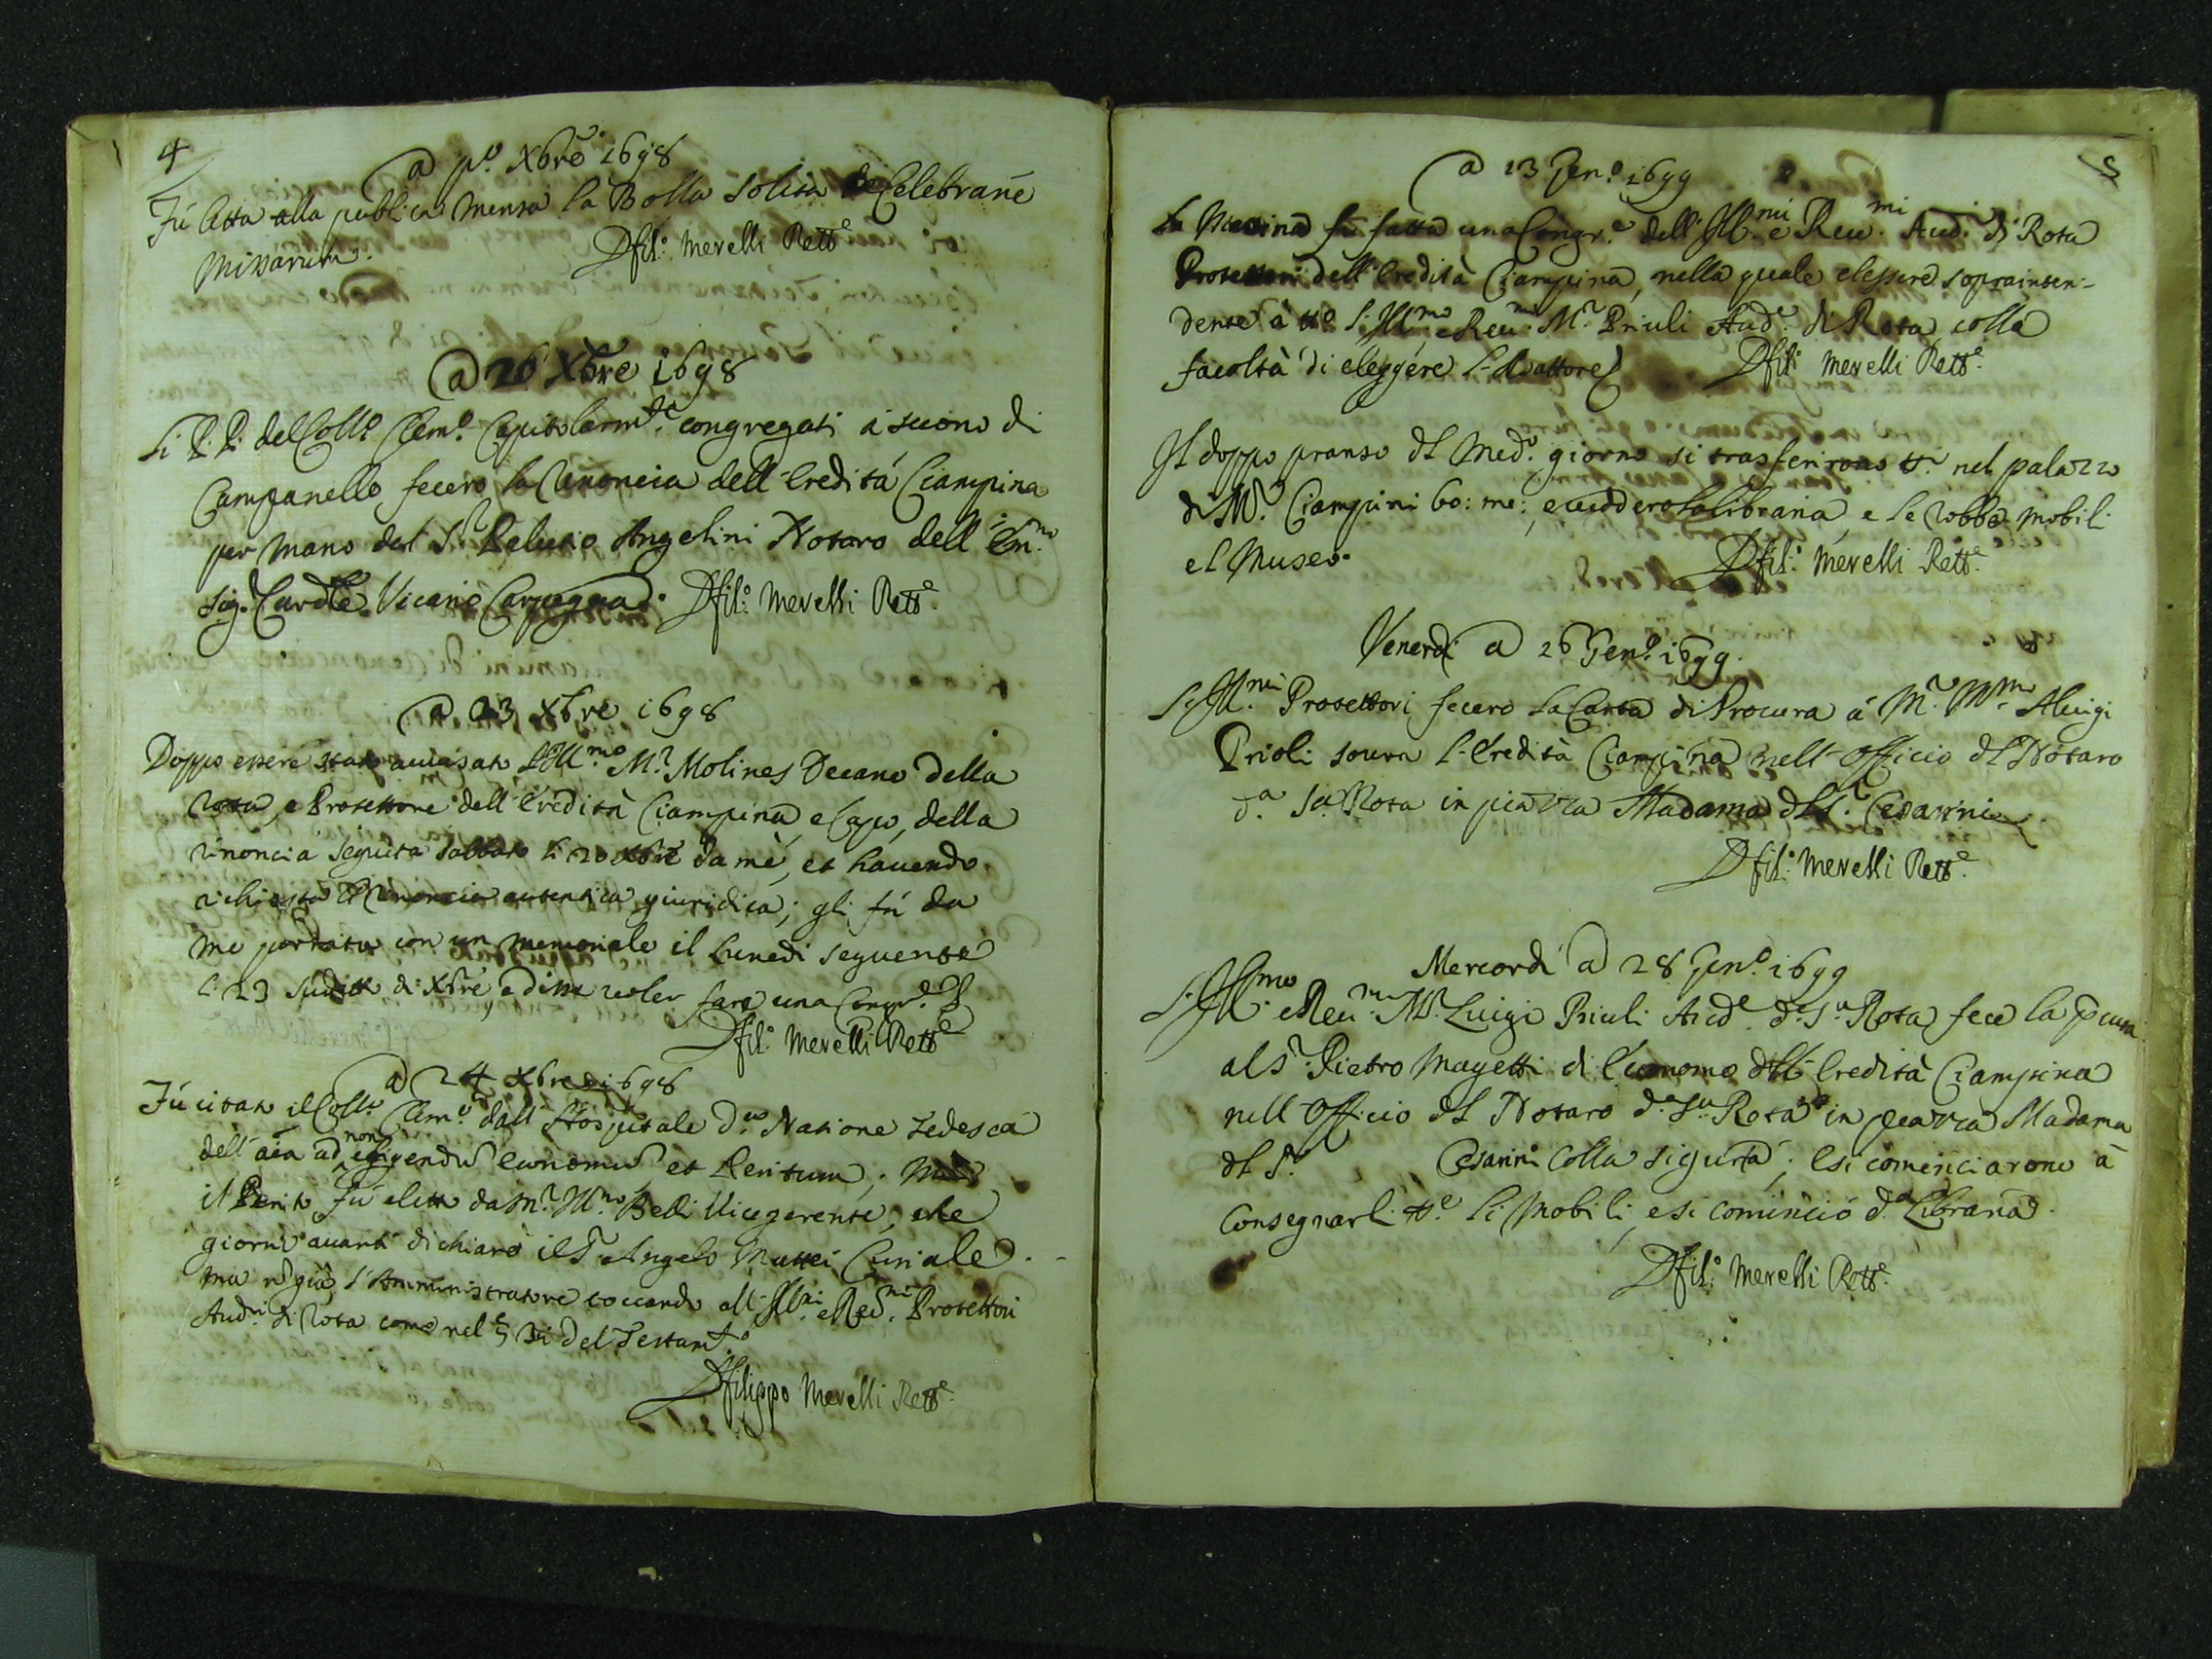 4
a p.º Xbre 1698
Fú letta alla publica mensa la Bolla solita de Celebrañe
Missarum.
D fil.º Merelli Rett.e
a 20 Xbre 1698
Li P. P. del Coll.º Clem.º Capitolarm.te congregati á suono di
Campanello fecero la renoncia dell'Eredità Ciampina
per mano del S.r Angelini Notaro dell'Em.mo
Sig.r Cardle Vicario Carpegna. D fil.º Merelli Rett.e
a 23 Xbre 1698
Doppo essere stato auuisato L'Ill.mo M.r Molines Decano della
rota, e Protettore dell'Eredità Ciampina, e Capo, della
rinoncia seguita Sabbato li 20 Xbre da mè, et hauendo
richiesta la rinoncia autentica giuridica; gli fú da
me portata con un memoriale il lunedi seguente
li 23 sudetto di Xbre e disse uoler fare una Congr.e
D fil.º Merelli Rett.e
a 24 Xbre 1698
Fú citato il Coll.º Clem.º dall'Hospitale d.ª Natione Tedesca
dell'aĩa ad non eligendũ economũ et Peritum; Mà
il Perito fu eletto da M.r Ill.mo Belli Vicegerente, che
giorni auanti dichiarò il S.r Angelo Mattei Curiale.
ma nõ già l'Amministratore toccando all'Ill.mi e Reu.mi Protettori
Aud.ri di rota come nel § 31 del Testam.to
D filippo Merelli Rett.e
5
a 13 Gen.º 1699
La Matina fu fatta una Congr.e dell'Ill.mi e Reu.mi Aud.ri di Rota
Protettori dell'Eredità Ciampina, nella quale elessero soprainten-
dente a tt.º l'Ill.mo e Reu.mo M.r Priuli Aud.e di Rota, colla
facoltà di eleggere l'
D fil.º Merelli Rett.e
Il doppo pranso dl Med.º giorno si trasferirono tt.i nel palazzo
di M.r Ciampini bo: me:, e uiddero la libraria, e le robbe mobili
el Museo.
D fil.º Merelli Rett.e
Venerdi a 26 Gen.º 1699.
Gl'Ill.mi Protettori fecero la Carta di Procura á M.r Ill.mo Aluigi
Prioli soura l'Eredità Ciampina nell'Officio dl Notaro
d.ª S.ª Rota in piazza Madama dl S.r Cesarini
D fil.º Merelli Rett.e
Mercordi a 28 Gen.º 1699
L'Ill.mo e Reu.mo M.r Luigi Priuli Aud.e d.ª S.ª Rota fece la pcura
al S.r Pietro Magetti di Economo dll'Eredità Ciampina
nell'Officio dl Notaro d.ª S.ª Rota in piazza Madama
dl S.r Cesarini colla sigurtà; e si cominciarono à
Consegnarli tt.e li Mobili, e si cominciò d.ª Libraria.
D fil.º Merelli Rett.e